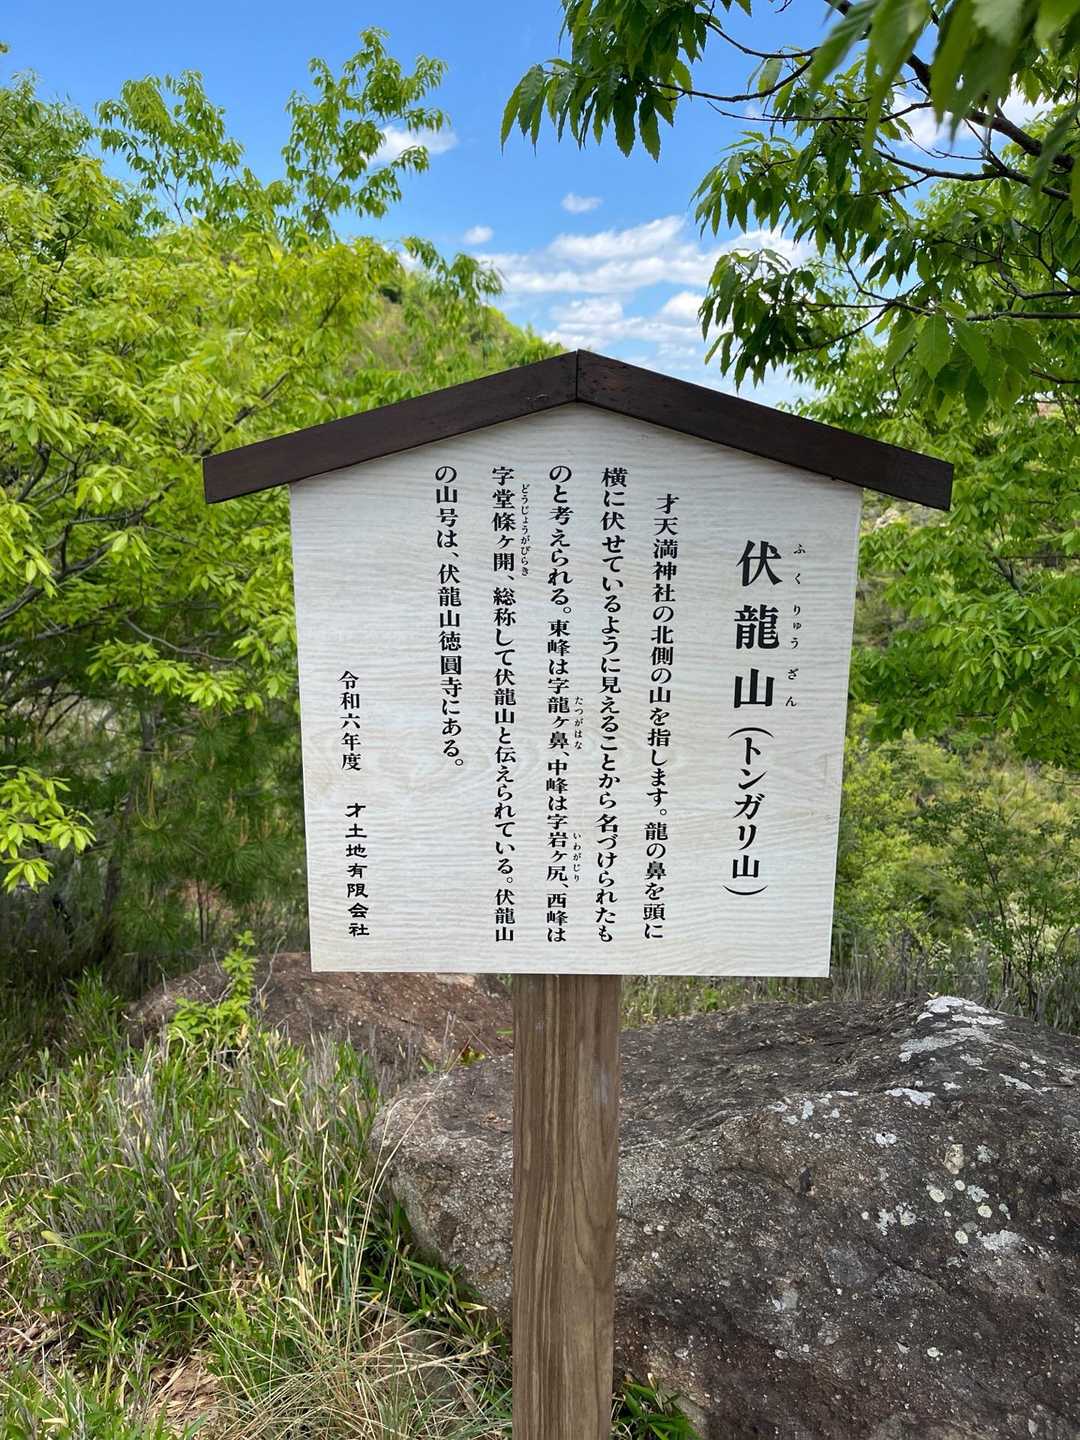 伏龍山（トンガリ山）
ふくりゅうざん
才天満神社の北側の山を指します。龍の鼻を頭に
横に伏せているように見えることから名づけられたも
のと考えられる。東峰は字龍ヶ鼻、中峰は字岩ヶ尻、西峰は
たつがはな
いわがじり
字堂條ヶ開、総称して伏龍山と伝えられている。伏龍山
どうじょうがびらき
の山号は、伏龍山徳圓寺にある。
令和六年度　才土地有限会社